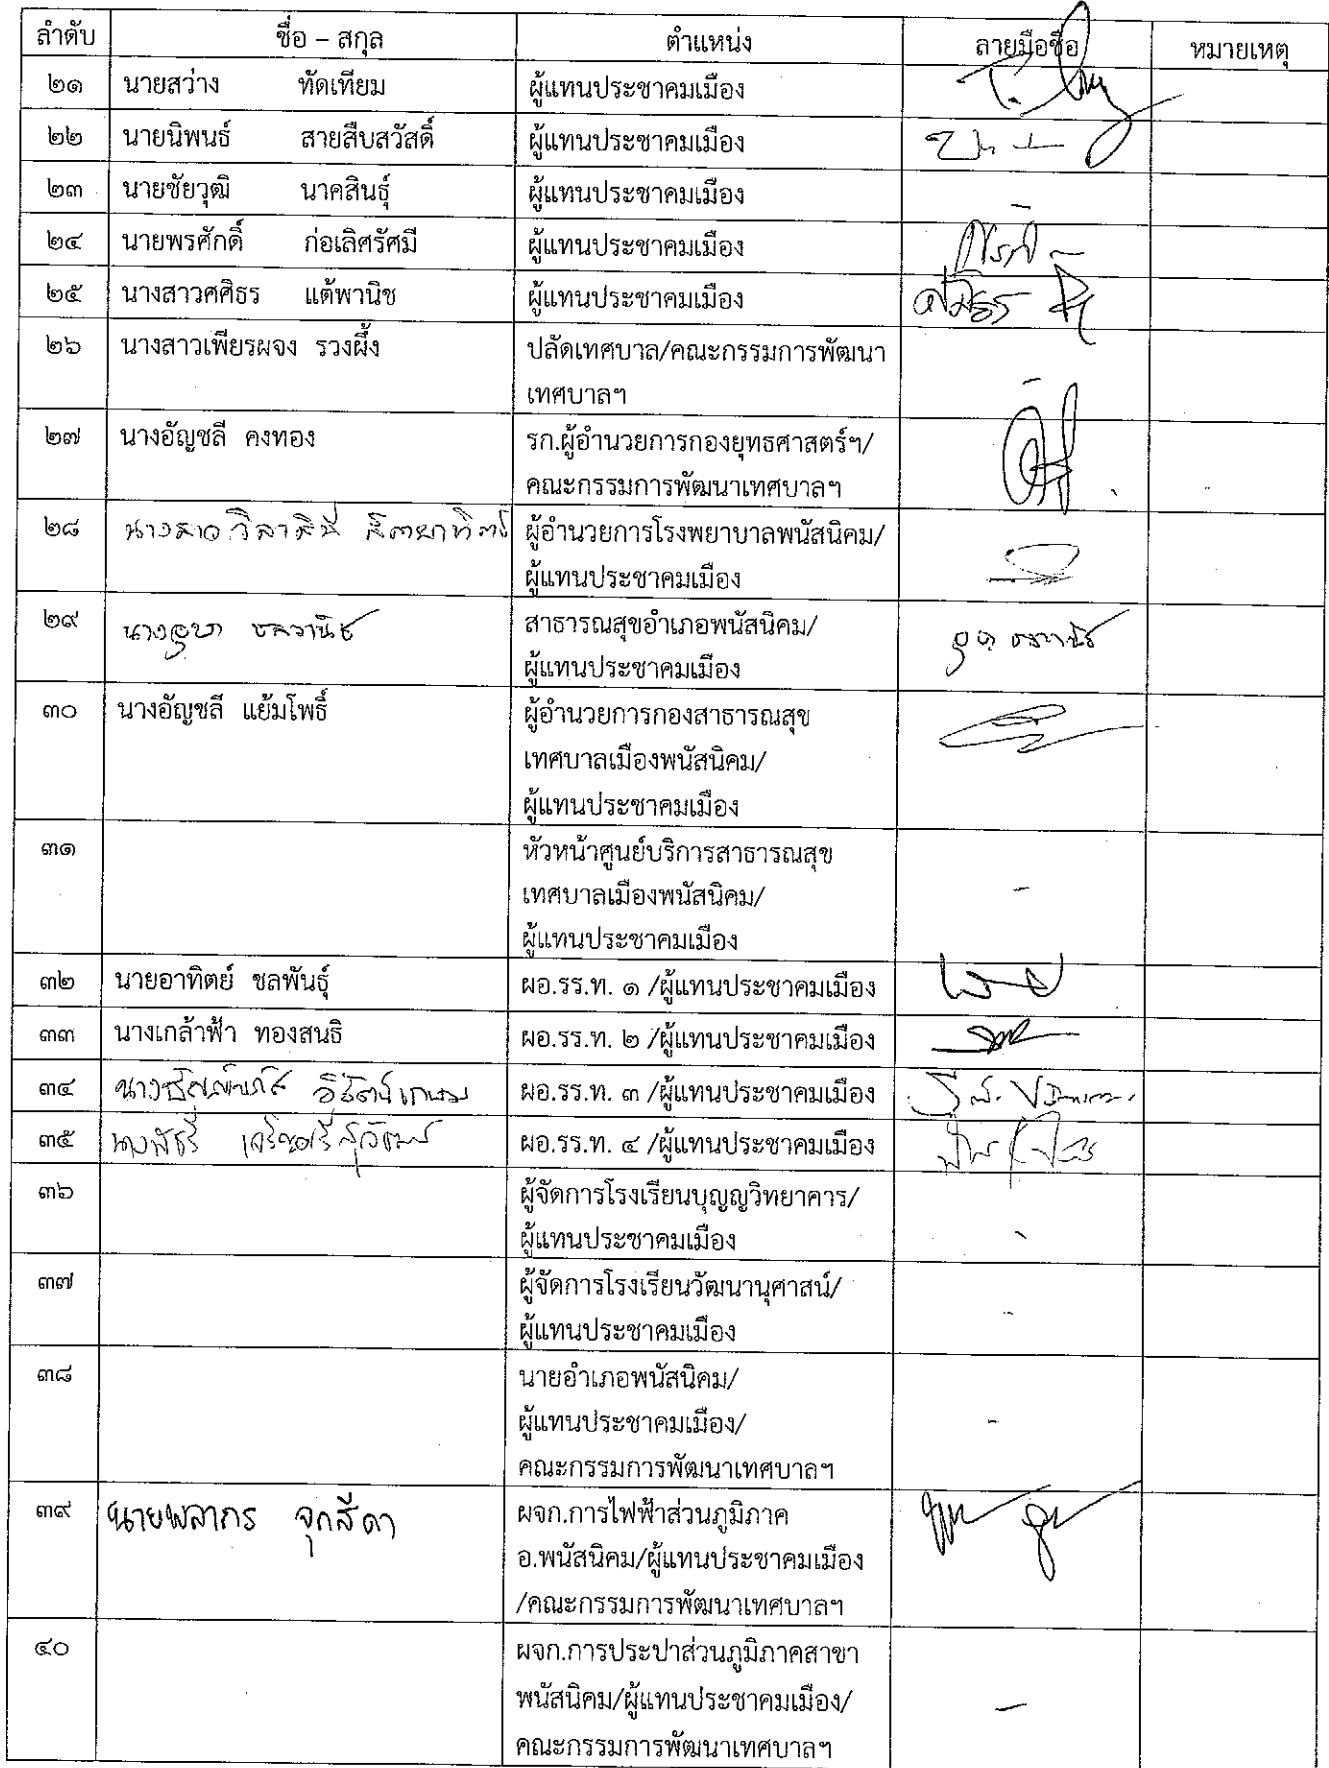 ลำดับ ชื่อ – สกุล ตำแหน่ง ลายมือชื่อ หมายเหตุ
๒๑ นายสว่าง ทัดเทียม ผู้แทนประชาคมเมือง
๒๒ นายนิพนธ์ สายสืบสวัสดิ์ ผู้แทนประชาคมเมือง
๒๓ นายชัยวุฒิ นาคสินธุ์ ผู้แทนประชาคมเมือง -
๒๔ นายพรศักดิ์ ก่อเลิศรัศมี ผู้แทนประชาคมเมือง
๒๕ นางสาวศศิธร แต้พานิช ผู้แทนประชาคมเมือง
๒๖ นางสาวเพียรผจง รวงผึ้ง ปลัดเทศบาล/คณะกรรมการพัฒนา
เทศบาลฯ -
๒๗ นางอัญชลี คงทอง รก.ผู้อำนวยการกองยุทธศาสตร์ฯ/
คณะกรรมการพัฒนาเทศบาลฯ
๒๘ นางสาววิลาสินี ผู้อำนวยการโรงพยาบาลพนัสนิคม/
ผู้แทนประชาคมเมือง
๒๙ สาธารณสุขอำเภอพนัสนิคม/
ผู้แทนประชาคมเมือง
๓๐ นางอัญชลี แย้มโพธิ์ ผู้อำนวยการกองสาธารณสุข
เทศบาลเมืองพนัสนิคม/
ผู้แทนประชาคมเมือง
๓๑ หัวหน้าศูนย์บริการสาธารณสุข
เทศบาลเมืองพนัสนิคม/ -
ผู้แทนประชาคมเมือง
๓๒ นายอาทิตย์ ชลพันธุ์ ผอ.รร.ท. ๑ /ผู้แทนประชาคมเมือง
๓๓ นางเกล้าฟ้า ทองสนธิ ผอ.รร.ท. ๒ /ผู้แทนประชาคมเมือง
๓๔ ผอ.รร.ท. ๓ /ผู้แทนประชาคมเมือง
๓๕ ผอ.รร.ท. ๔ /ผู้แทนประชาคมเมือง
๓๖ ผู้จัดการโรงเรียนบุญญวิทยาคาร/
ผู้แทนประชาคมเมือง -
๓๗ ผู้จัดการโรงเรียนวัฒนานุศาสน์/
ผู้แทนประชาคมเมือง -
๓๘ นายอำเภอพนัสนิคม/
ผู้แทนประชาคมเมือง/ -
คณะกรรมการพัฒนาเทศบาลฯ
๓๙ นายพลากร จุกสีดา ผจก.การไฟฟ้าส่วนภูมิภาค
อ.พนัสนิคม/ผู้แทนประชาคมเมือง
/คณะกรรมการพัฒนาเทศบาลฯ
๔๐ ผจก.การประปาส่วนภูมิภาคสาขา
พนัสนิคม/ผู้แทนประชาคมเมือง/ -
คณะกรรมการพัฒนาเทศบาลฯ